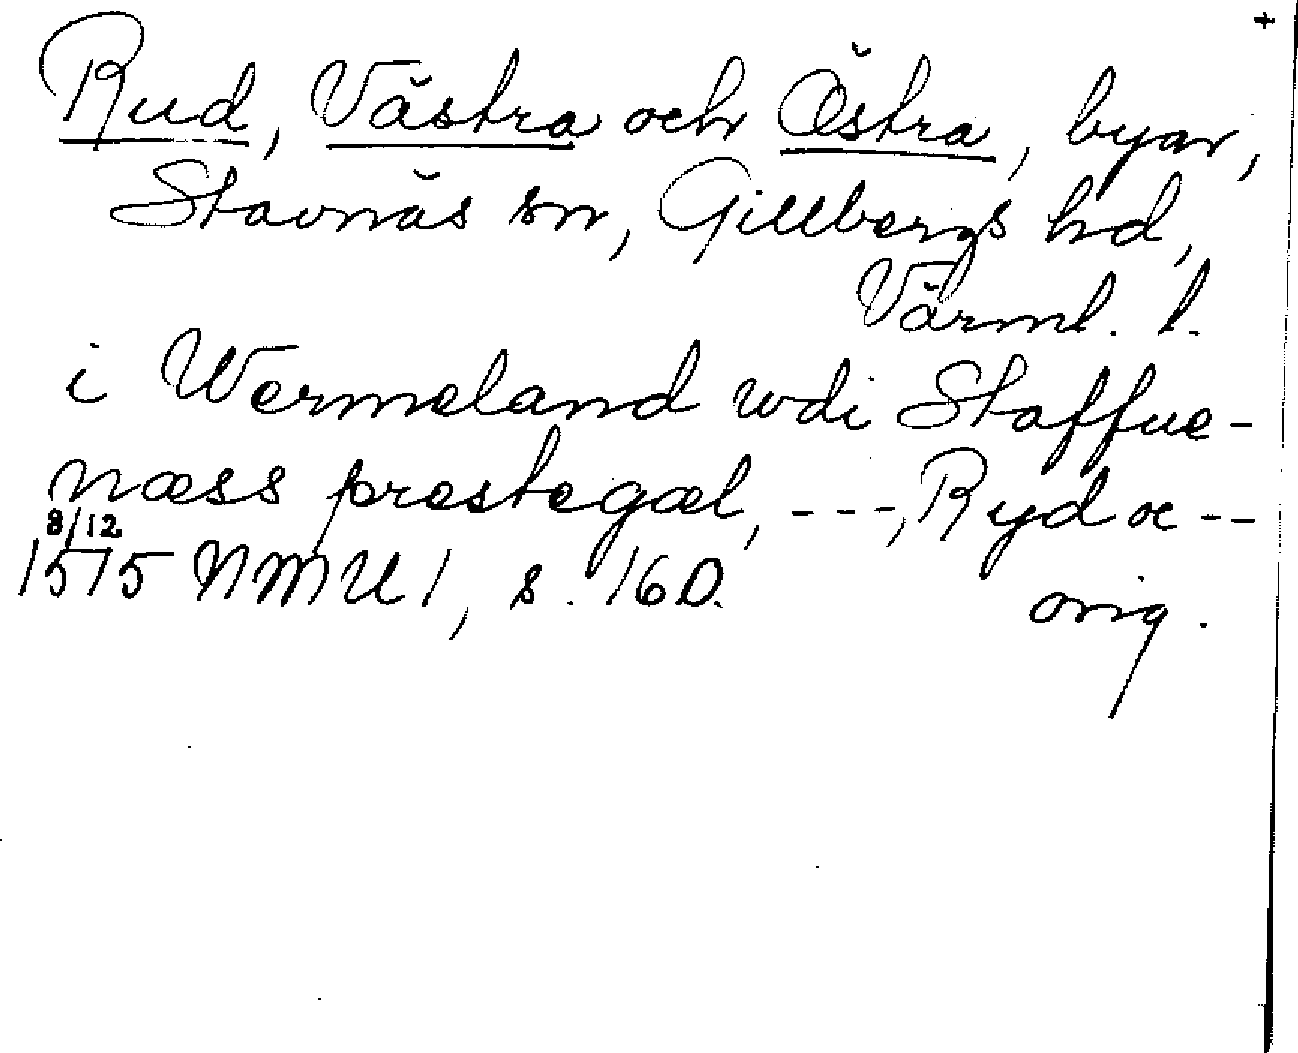 +
Rud, Västra och Östra, byar,
Stavnäs sn, Gillbergs hd,
Värml. l.
i Wermeland wdi Staffue-
næss prestegæl, ---, Ryd oc --
8/12
1575 NMU 1, s. 160.
orig.